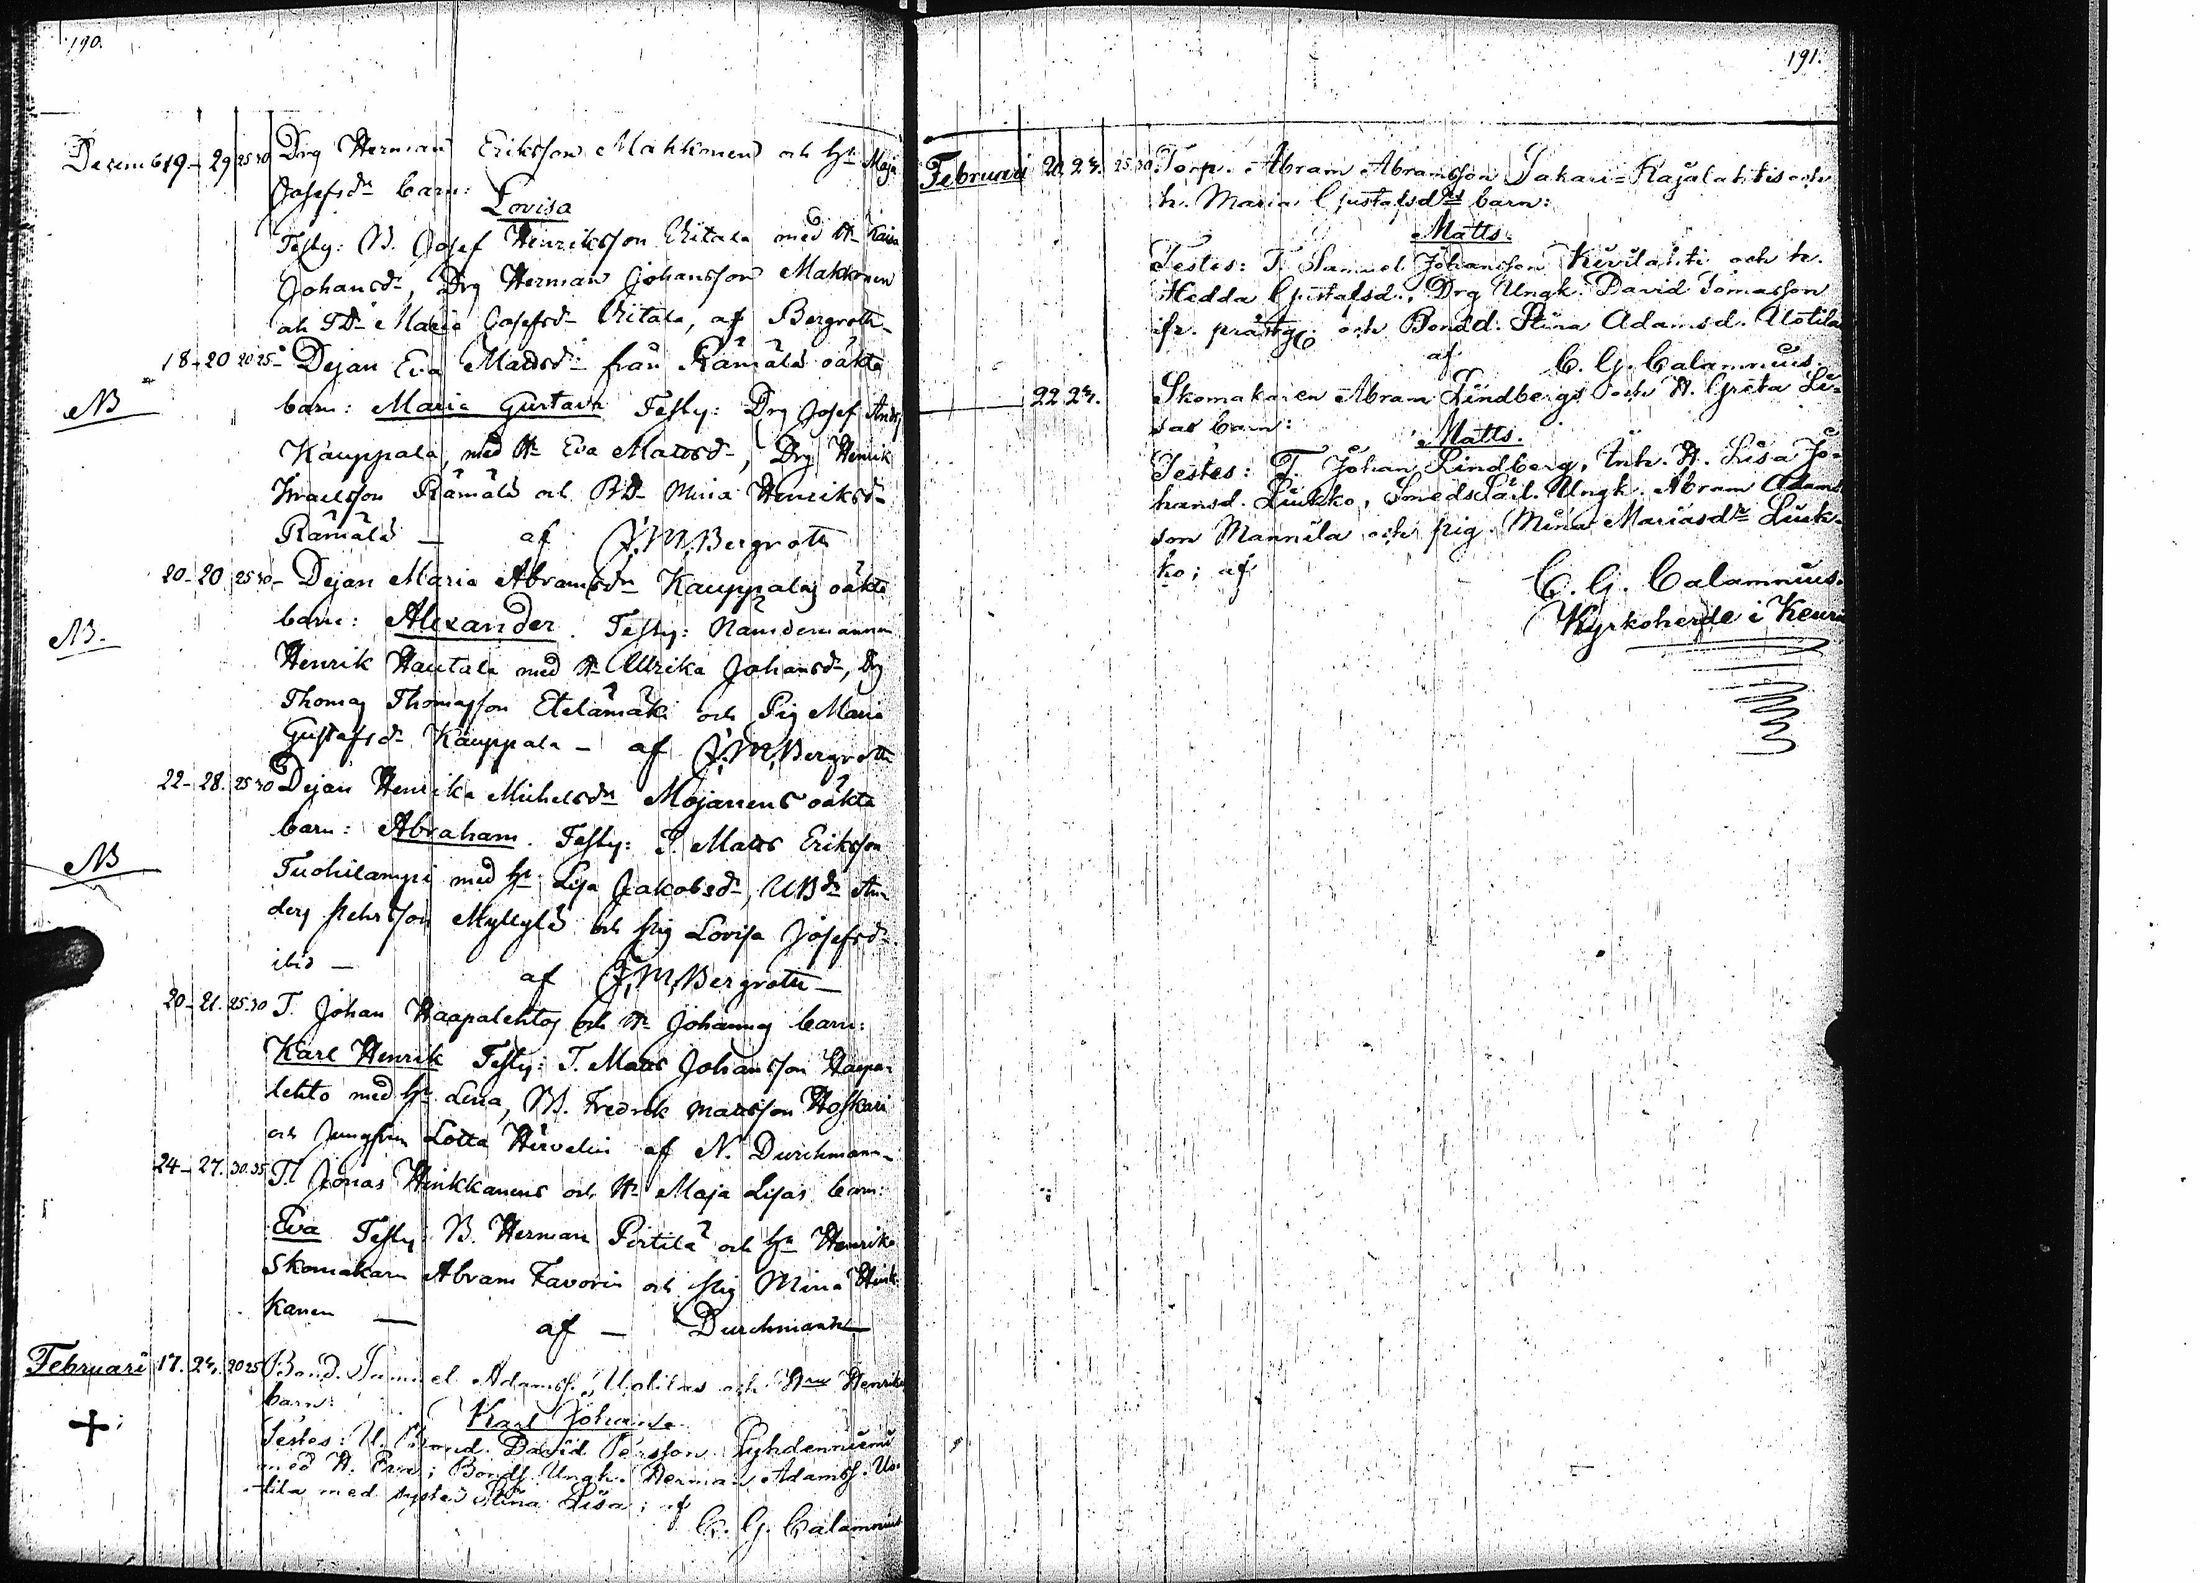 190.
Decemb 19 - 29 25 30 Drg Herman Eriksson Mahkonen och Hu Maja
Josefsdr barn:
Lovisa
Testes: B. Josef Henriksson Riitala med H. Kaisa
Johansdr, Drg Herman Johansson Makkonen
och TDr Maria Josefsdr Riitala, af Bergroth
18 - 20 20 25 - Dejan Eva Mattsdr från Rämälä oäkta
NB
barn: Maria Gustava Testes: Drg Josef Anders
Kauppala, med H. Eva Mattsdr, Drg Henrik
Israelsson Rämälä och BDr Mina Henriksdr
Rämälä — af J. M. Bergroth
20 - 20 25 30 - Dejan Maria Abramsdr Kauppalas oäkta
NB.
barn: Alexander. Testes: Nämdemannen
Henrik Hautala med H. Ulrika Johansdr, Drg
Thomas Thomasson Etelämäki och Pig Maria
Gustafsdr Kauppala - af J. M. Bergroth
22 - 28. 25 30 Dejan Henrika Michelsdr Mojanens oäkta
NB
barn: Abraham. Testes: T. Matts Eriksson
Tuohilampi med Hu Lisa Jakobsdr, UBdr An
ders Pehrsson Myllylä och Pig Lovisa Josefsdr
ibid — af J. M. Bergroth —
20 - 21. 25.30 T. Johan Haapalehtos och H. Johannas barn:
Karl Henrik Testes: T. Matts Johansson Haapa
lehto med Hu Lena, B. Fredrik Mattsson Hoskari
och Jungfrun Lotta Hirvelin af N. Durchman -
24 - 27. 30.35 T. Jonas Hinkkanens och H. Maja Lisas barn:
Eva Testes: B. Herman Pirtilä och Hu Henrika
Skomakarn Abram Favorin och Pig Mina Hink
kanen — af — Durchman —
Februari 17. 24. 20 25 Bond. Samuel Adamss. Uotilas och Hus Henrikas
barn:
Karl Johan
Testes: U. Bond. David Persson Pyhdenniemi
med H. Eva; Bonds. Ungk. Herman Adamss. Uo-
tila med syster Stina Lisa; af
C. G. Calamnius
191.
Februari 20. 24. 25 30. Torp. Abram Abramsson Sakari-Rajalahtis och
h. Maria Gustafsdrs barn:
Matts.
Testes: T. Samuel Johansson Kivilahti och h.
Hedda Gustafsd., Drg Ungk. David Tomasson
ifr. prästg. och Bondd. Stina Adamsd. Alotila
af C. G. Calamnius.
22 24. Skomakaren Abram Lindbergs och H. Greta Li-
sas barn:
Matts.
Testes: T. Johan Lindberg, Enk. H. Lisa Jo-
hansd. Liukko, Smedslärl. Ungk. Abram Adams
son Mannila och pig. Mina Mariasdr Liuk-
ko; af
C. G. Calamnius.
Kyrkoherde i Keuru